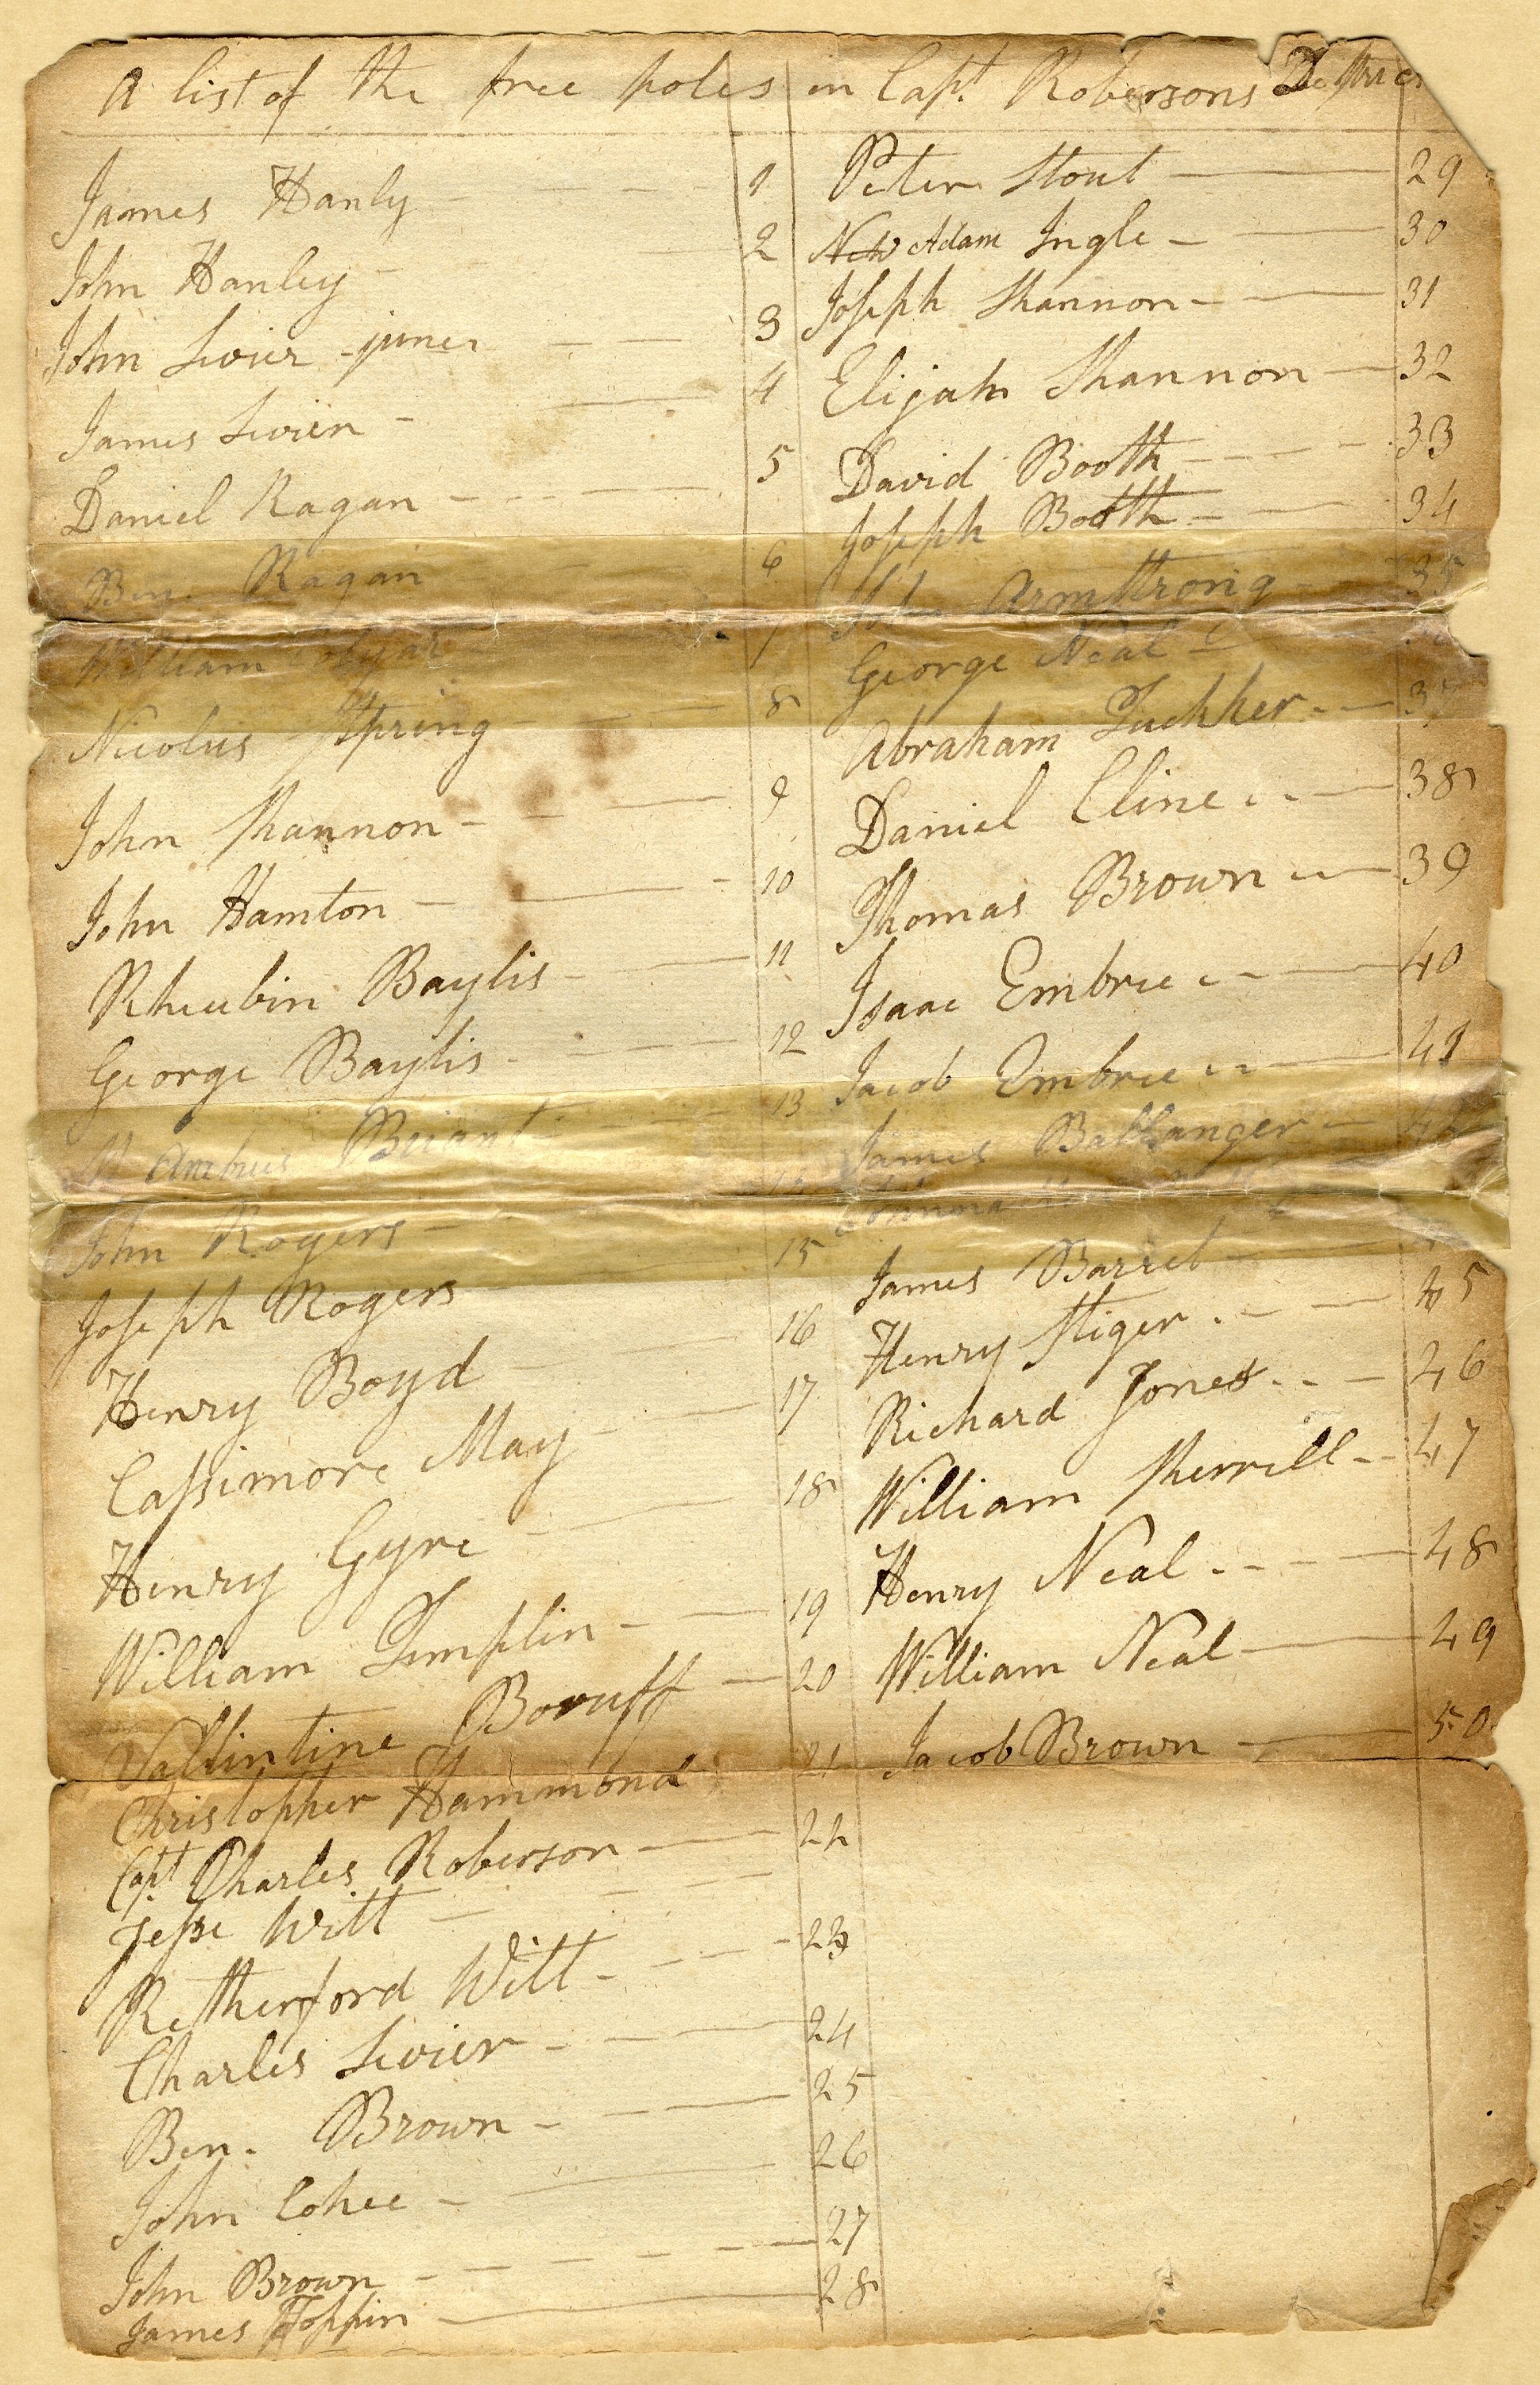 A list of the free poles in Capt. Robersons
James Hanly 1
John Hanley 2
John Sevier juner 3
James Sevier 4
Daniel Ragan 5
Ben. Ragan 6
William 7
Nicolus Spring 8
John Shannon 9
John Hamton 10
Rheubin Baylis 11
George Baylis 12
Ambrus Briant 13
John Rogers
Joseph Rogers 15
Henry Boyd 16
Cassimore May 17
Henry Gyre 18
William Templin 19
Vallintine Boruff 20
Christopher Hammond 21
Capt. Charles Roberson 22
Jesse Witt
Retherford Witt 23
Charles Sevier 24
Ben. Brown 25
John Cohee 26
John Brown 27
James Hoppin 28
Peter Stout 29
New Adam Ingle 30
Joseph Shannon 31
Elijah Shannon 32
David Booth 33
Joseph Booth 34
John Armstrong 35
George Neal
Abraham Tuckker 37
Daniel Cline 38
Thomas Brown 39
Isaac Embree 40
Jacob Embree 41
James Ballanger 42
James Barret
Henry Stiger 45
Richard Jones 46
William Sherrill 47
Henry Neal 48
William Neal 49
Jacob Brown 50